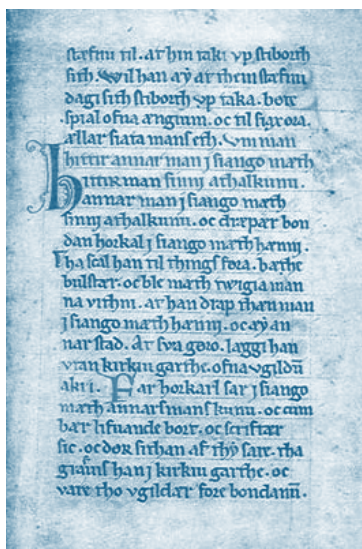 stæfnu til. at hin taki vp stiborth
sith. Wil han æy at them stæfnu
dagi sith stiborth vp taka. bote
spial ofna ængium. oc til siax ora.
ællar siata mans eth. Vm man
hittir annar man j siango mæth
Hittir man sinni athalkunu.
annar man j siango mæth
sinni athalkunu. oc dræpær bon
dan horkal j siango mæth hænni.
Tha scal han til things fora. bæthe
bulstær. oc ble mæth twigia man
na vitni. at han drap thæn man
j siango mæth hænni. oc æy an
nar stad. Ær sva gøro. læggi han
vtan kirkiu garthe. ofna vgildū
akri. Far horkarl sar j siango
mæth annars mans kunu. oc cum
bær lifuande bort. oc scriftær
sic. oc dør sithan af thy sare. tha
grafus han j kirkiu garthe. oc
vare tho vgildær fore bondanū.